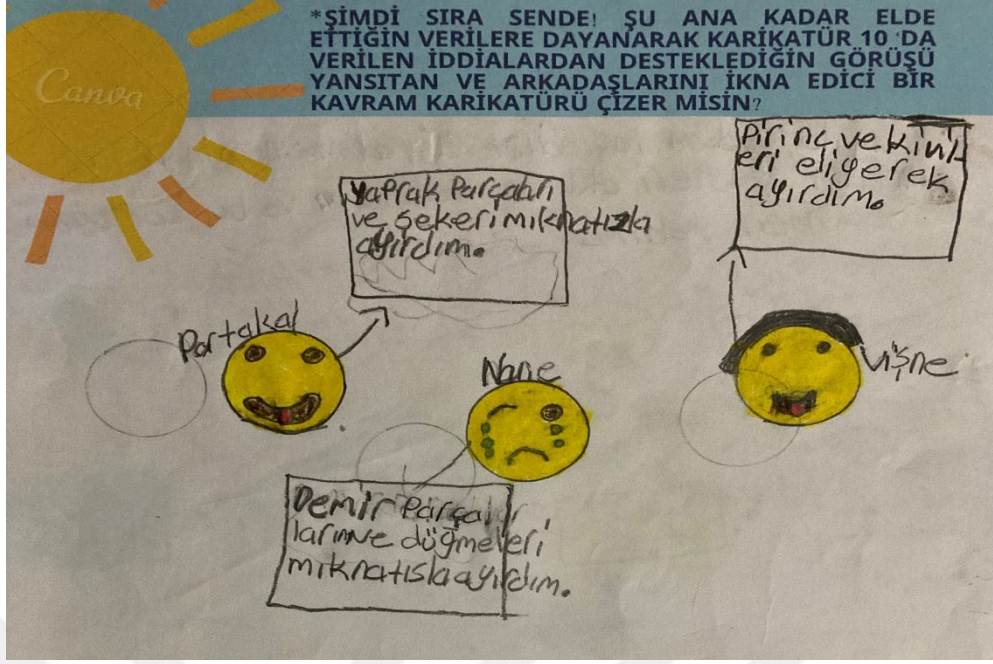 Canva
*ŞİMDİ SIRA SENDE! ŞU ANA KADAR ELDE
ETTİĞİN VERİLERE DAYANARAK KARİKATÜR 10 'DA
VERİLEN İDDİALARDAN DESTEKLEDİĞİN GÖRÜŞÜ
YANSITAN VE ARKADAŞLARINI İKNA EDİCİ BİR
KAVRAM KARİKATÜRÜ ÇİZER MİSİN?
Yaprak Parçaları
ve şekeri mıknatızla
ayırdım.
Pirinç ve
eri eliyerek
ayırdım.
Portakal
Nane
vişne
Demir Parçalır
larını ve düğmeleri
mıknatısla ayırdım.